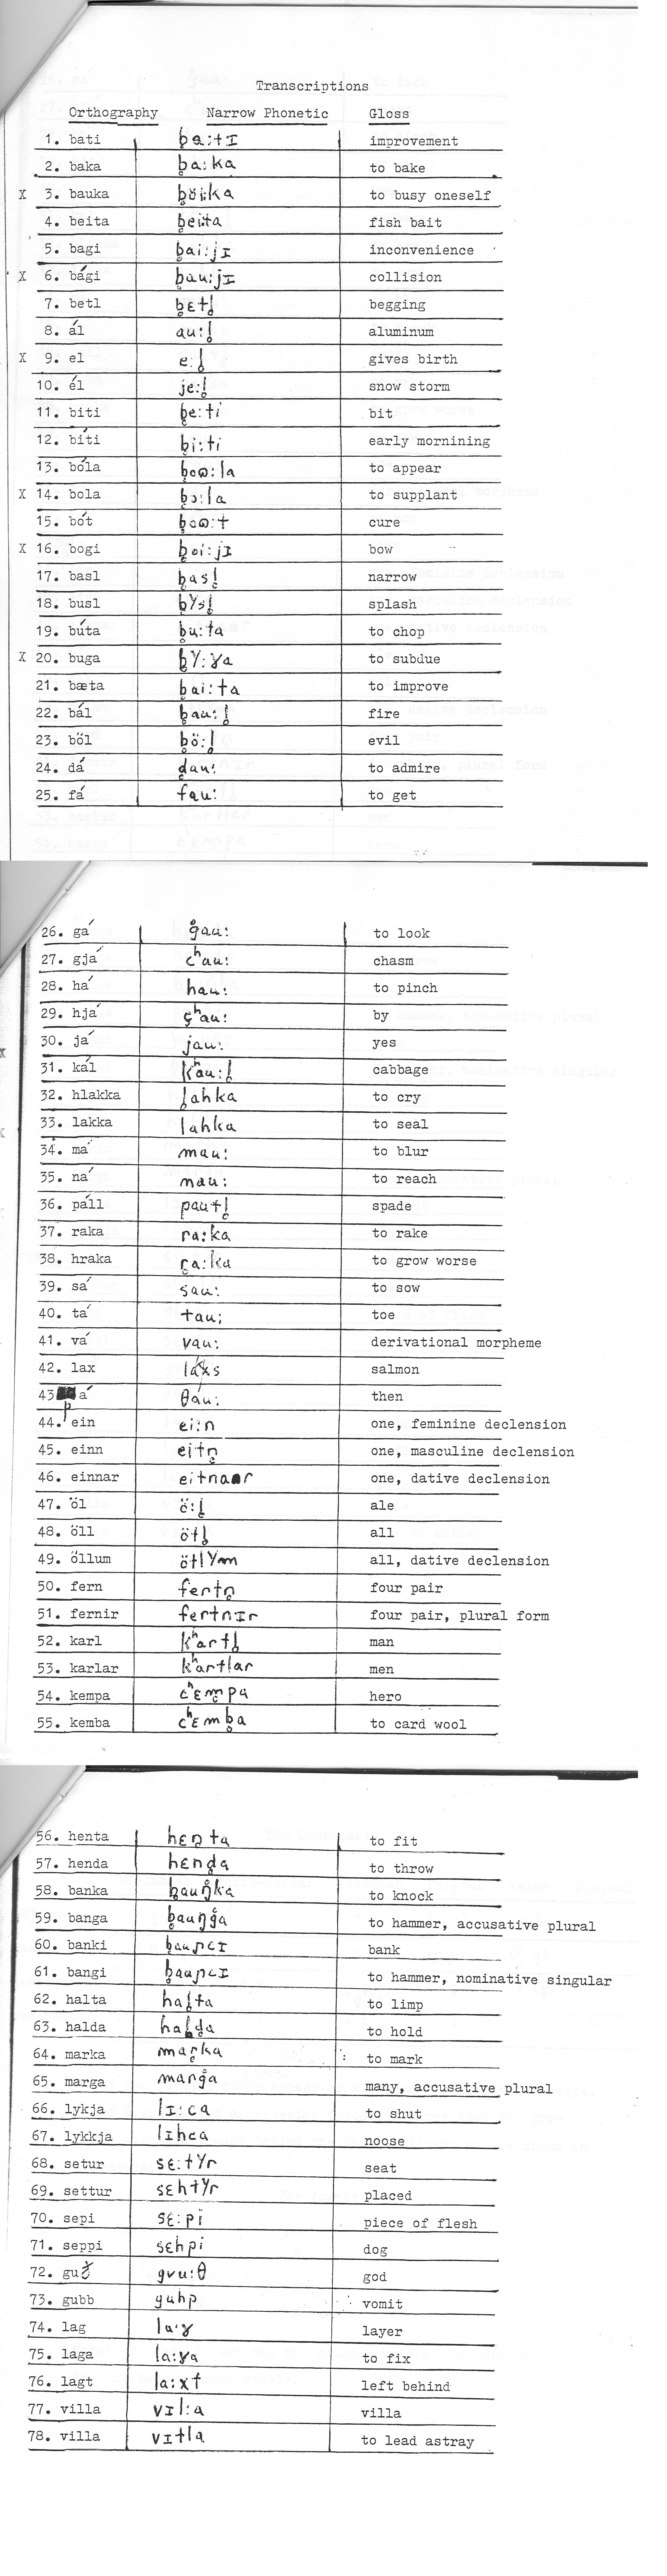 Transcriptions
Orthography Narrow Phonetic Gloss
1. bati b̥a:tɪ improvement
2. baka b̥a:ka to bake
X 3. bauka b̥öi:ka to busy oneself
4. beita b̥ei:ta fish bait
5. bagi b̥ai:jɪ inconvenience
X 6. bági b̥au:jɪ collision
7. betl b̥ɛtl̥ begging
8. ál au:l̥ aluminum
X 9. el e:l̥ gives birth
10. él je:l̥ snow storm
11. biti b̥e:ti bit
12. bíti b̥i:ti early mornining
13. bóla b̥oɷ:la to appear
X 14. bola b̥ɔ:la to supplant
15. bót b̥oɷ:t cure
X 16. bogi b̥oi:jɪ bow
17. basl b̥asl̥ narrow
18. busl b̥ʏsl̥ splash
19. búta b̥u:ta to chop
X 20. buga b̥ʏ:ɣa to subdue
21. bæta b̥ai:ta to improve
22. bál b̥au:l̥ fire
23. böl b̥ö:l̥ evil
24. dá d̥au: to admire
25. fá fau: to get
26. gá g̊au: to look
27. gjá cʰau: chasm
28. há hau: to pinch
29. hjá çʰau: by
30. já jau: yes
31. kál kʰau:l̥ cabbage
32. hlakka l̥ahka to cry
33. lakka lahka to seal
34. má mau: to blur
35. ná nau: to reach
36. páll pautl̥ spade
37. raka ra:ka to rake
38. hraka r̥a:ka to grow worse
39. sá sau: to sow
40. tá tau: toe
41. vá vau: derivational morpheme
42. lax salmon
43 þá θau: then
44. ein ei:n one, feminine declension
45. einn eitn̥ one, masculine declension
46. einnar eitnar one, dative declension
47. öl ö:l̥ ale
48. öll ötl̥ all
49. öllum ötlʏm all, dative declension
50. fern fertn̥ four pair
51. fernir fertnɪr four pair, plural form
52. karl kʰartl̥ man
53. karlar kʰartlar men
54. kempa cʰɛm̥pa hero
55. kemba cʰɛmb̥a to card wool
56. henta hɛn̥ta to fit
57. henda hɛnd̥a to throw
58. banka b̥auŋ̊ka to knock
59. banga b̥auŋg̊a to hammer, accusative plural
60. banki b̥auɲcɪ bank
61. bangi b̥auɲcɪ to hammer, nominative singular
62. halta hal̥ta to limp
63. halda hald̥a to hold
64. marka mar̥ka to mark
65. marga marg̊a many, accusative plural
66. lykja lɪ:ca to shut
67. lykkja lɪhca noose
68. setur sɛ:tʏr seat
69. settur sɛhtʏr placed
70. sepi sɛ:pi piece of flesh
71. seppi sɛhpi dog
72. guð gvu:θ god
73. gubb guhp vomit
74. lag la·ɣ layer
75. laga la:ɣa to fix
76. lagt la:xt left behind
77. villa vɪl:a villa
78. villa vɪtla to lead astray